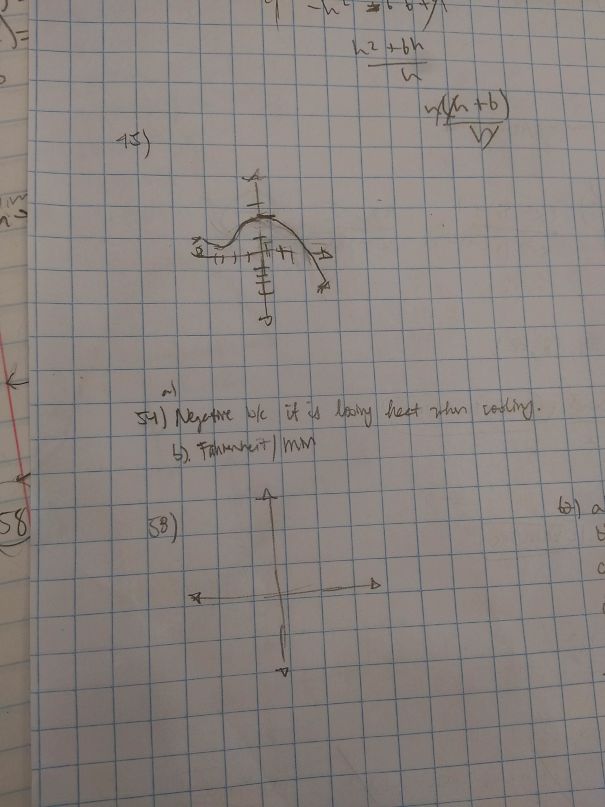 h² + 6h
h
h(h + 6)
h
45)
a)
54) Negative b/c it is losing heat when cooling.
b). Fahrenheit/min
58
58)
60) a